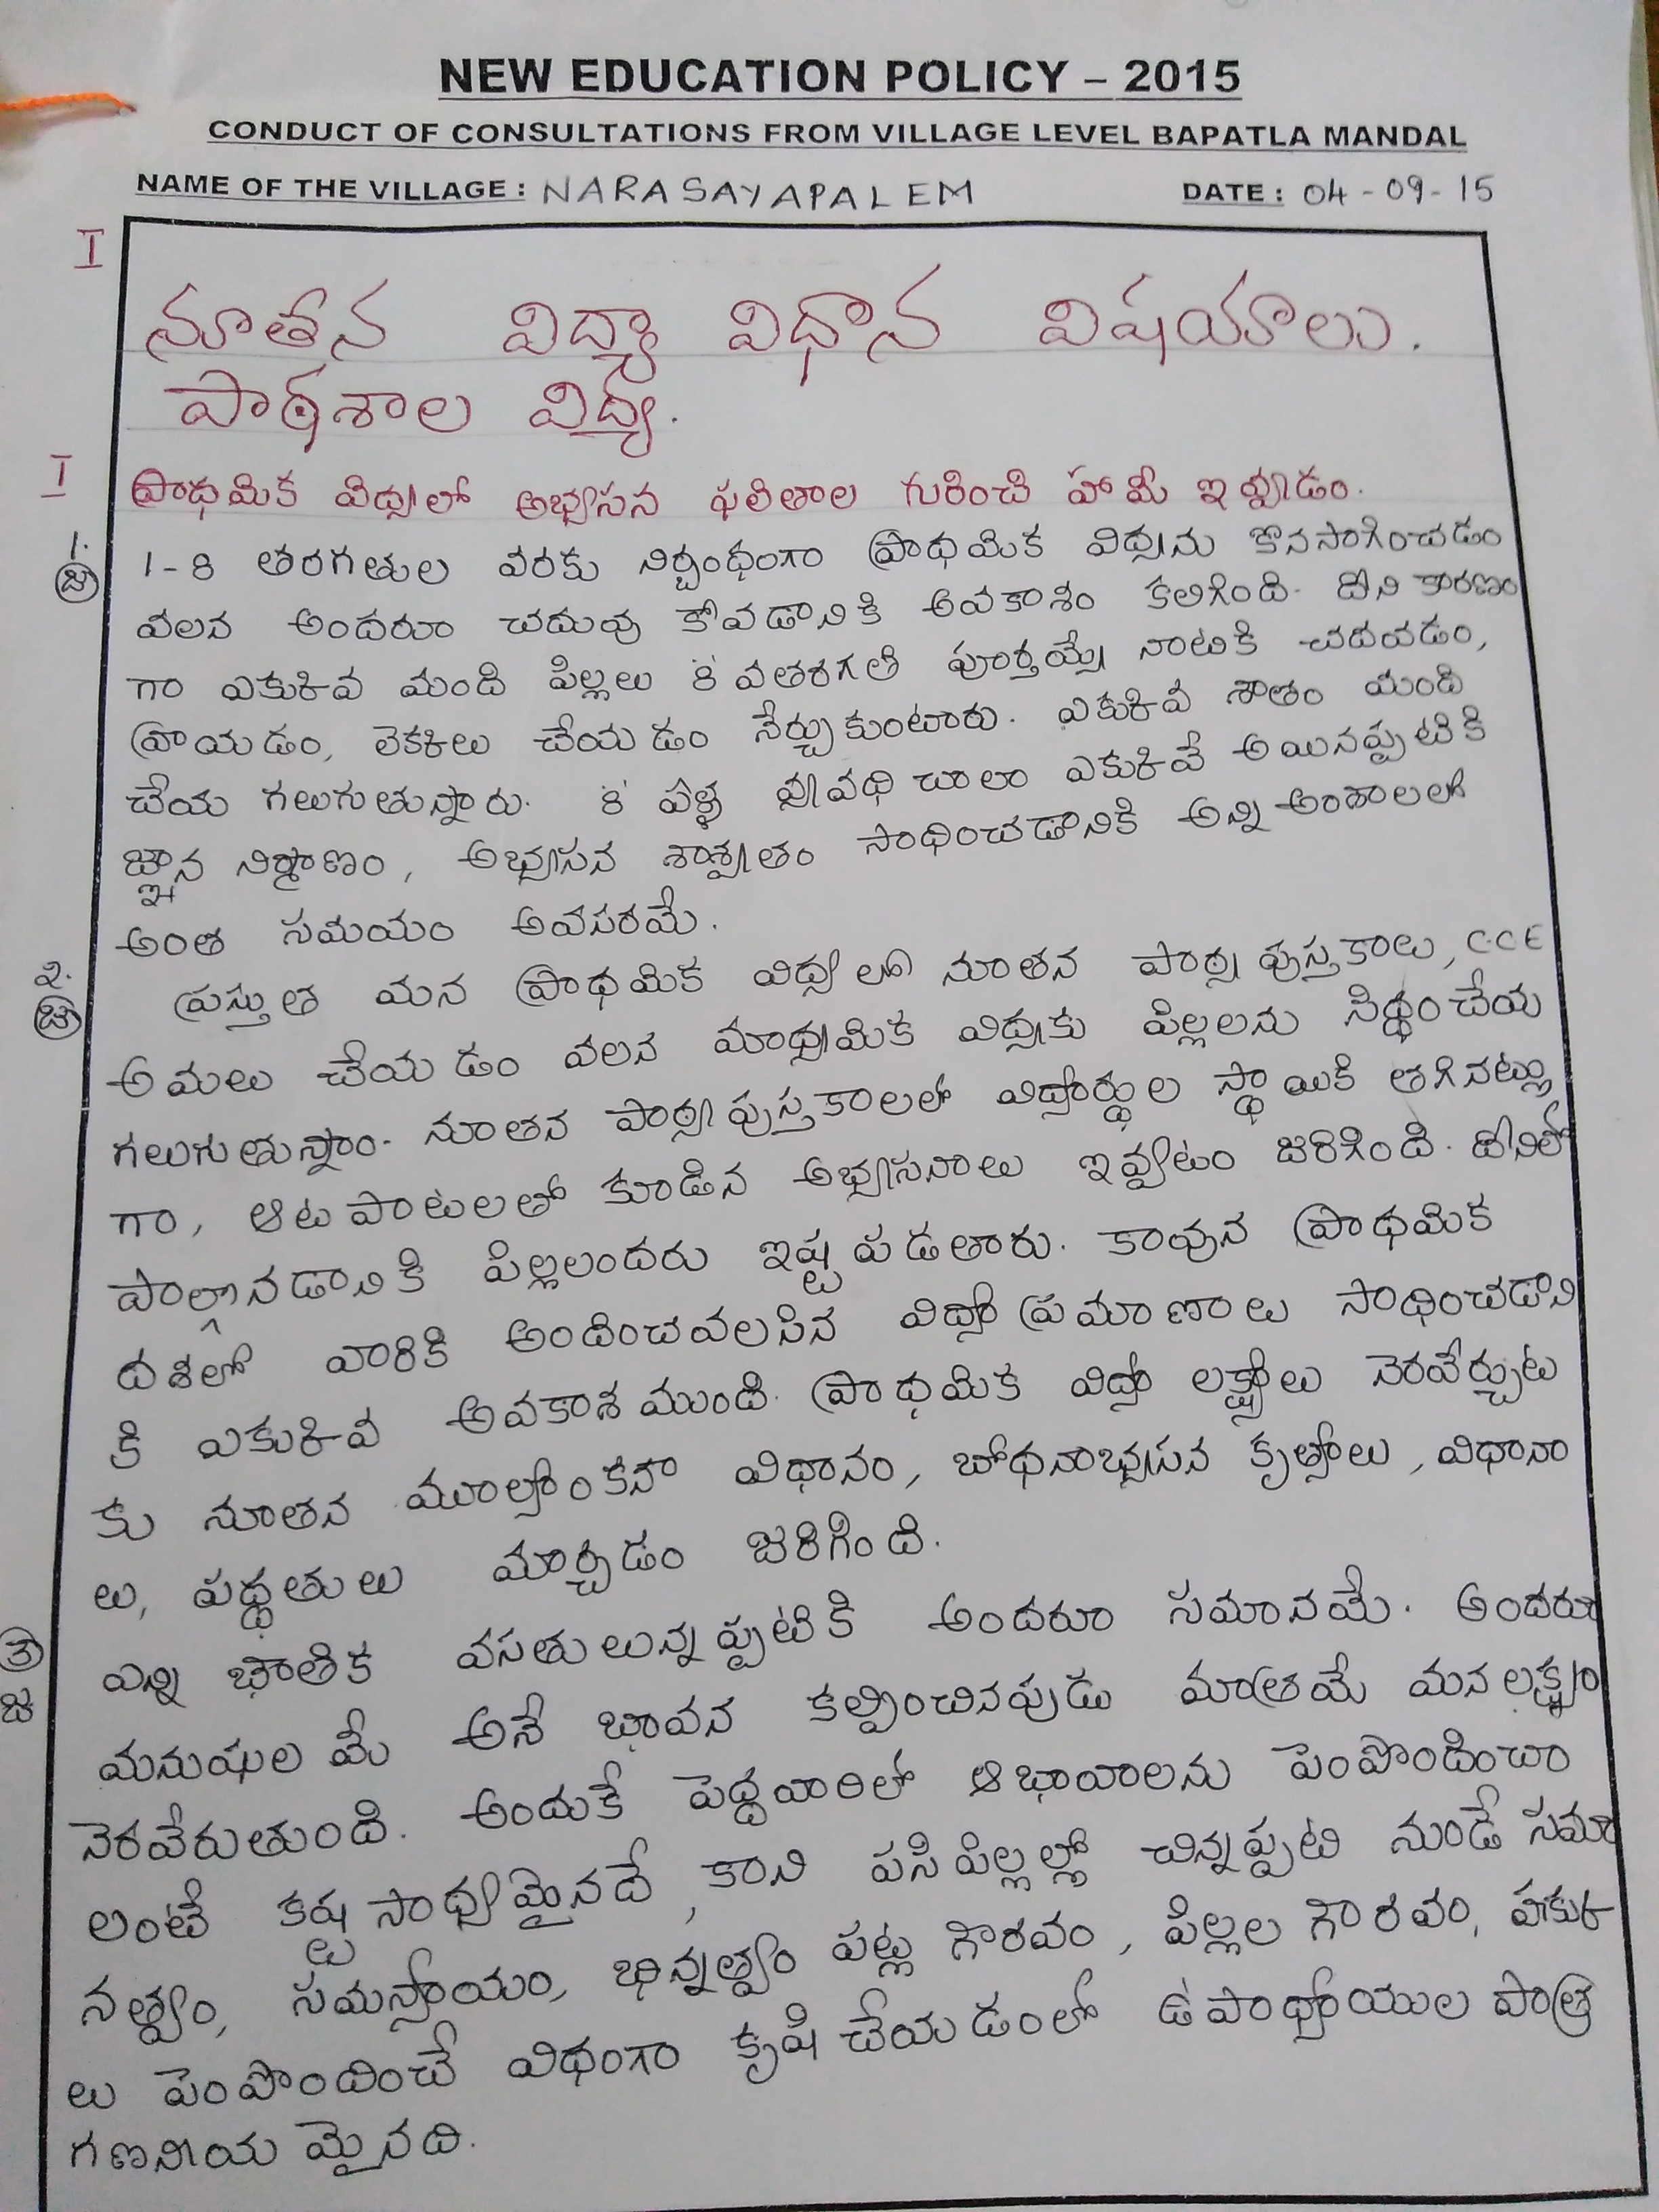 NEW EDUCATION POLICY – 2015
CONDUCT OF CONSULTATIONS FROM VILLAGE LEVEL BAPATLA MANDAL
NAME OF THE VILLAGE : NARASAYAPALEM DATE : 04-09-15
I
నూతన విద్యా విధాన విషయాలు.
పాఠశాల విద్య.
I ప్రాధమిక విద్యలో అభ్యసన ఫలితాల గురించి హామీ ఇవ్వడం.
1. జ 1-8 తరగతుల వరకు నిర్బంధంగా ప్రాధమిక విద్యను కొనసాగించడం
వలన అందరూ చదువు కోవడానికి అవకాశం కలిగింది. దీని కారణం
గా ఎక్కువ మంది పిల్లలు 8వ తరగతి పూర్తయ్యే నాటికి చదవడం,
వ్రాయడం, లెక్కలు చేయడం నేర్చుకుంటారు. ఎక్కువ శాతం మంది
చేయ గలుగుతున్నారు. 8 ఏళ్ళ వ్యవధి చాలా ఎక్కువే అయినప్పటికి
జ్ఞాన నిర్మాణం, అభ్యసన శాశ్వతం సాధించడానికి అన్ని అంశాలలో
అంత సమయం అవసరమే.
2. జ ప్రస్తుత మన ప్రాధమిక విద్యలో నూతన పాఠ్య పుస్తకాలు, C.C.E
అమలు చేయడం వలన మాధ్యమిక విద్యకు పిల్లలను సిద్ధంచేయ
గలుగుతున్నాం. నూతన పాఠ్యపుస్తకాలలో విద్యార్థుల స్థాయికి తగినట్లు
గా, ఆట పాటలతో కూడిన అభ్యసనాలు ఇవ్వటం జరిగింది. దీనిలో
పాల్గొనడానికి పిల్లలందరు ఇష్ట పడతారు. కావున ప్రాథమిక
దశలో వారికి అందించవలసిన విద్యా ప్రమాణాలు సాధించడాని
కి ఎక్కువ అవకాశముంది. ప్రాథమిక విద్యా లక్ష్యాలు నెరవేర్చుట
కు నూతన మూల్యాంకనా విధానం, బోధనాభ్యసన కృత్యాలు, విధానా
లు, పద్ధతులు మార్చడం జరిగింది.
3 జ ఎన్ని భౌతిక వసతులున్నప్పటికి అందరూ సమానమే. అందరూ
మనుషుల మే అనే భావన కల్పించినపుడు మాత్రమే మన లక్ష్యం
నెరవేరుతుంది. అందుకే పెద్దవారిలో ఆభావాలను పెంపొందించా
లంటే కష్ట సాధ్యమైనదే, కాని పసి పిల్లల్లో చిన్నప్పటి నుండే సమా
నత్వం, సమన్యాయం, భిన్నత్వం పట్ల గౌరవం, పిల్లల గౌరవం, హక్కు
లు పెంపొందించే విధంగా కృషి చేయడంలో ఉపాధ్యాయుల పాత్ర
గణనీయ మైనది.